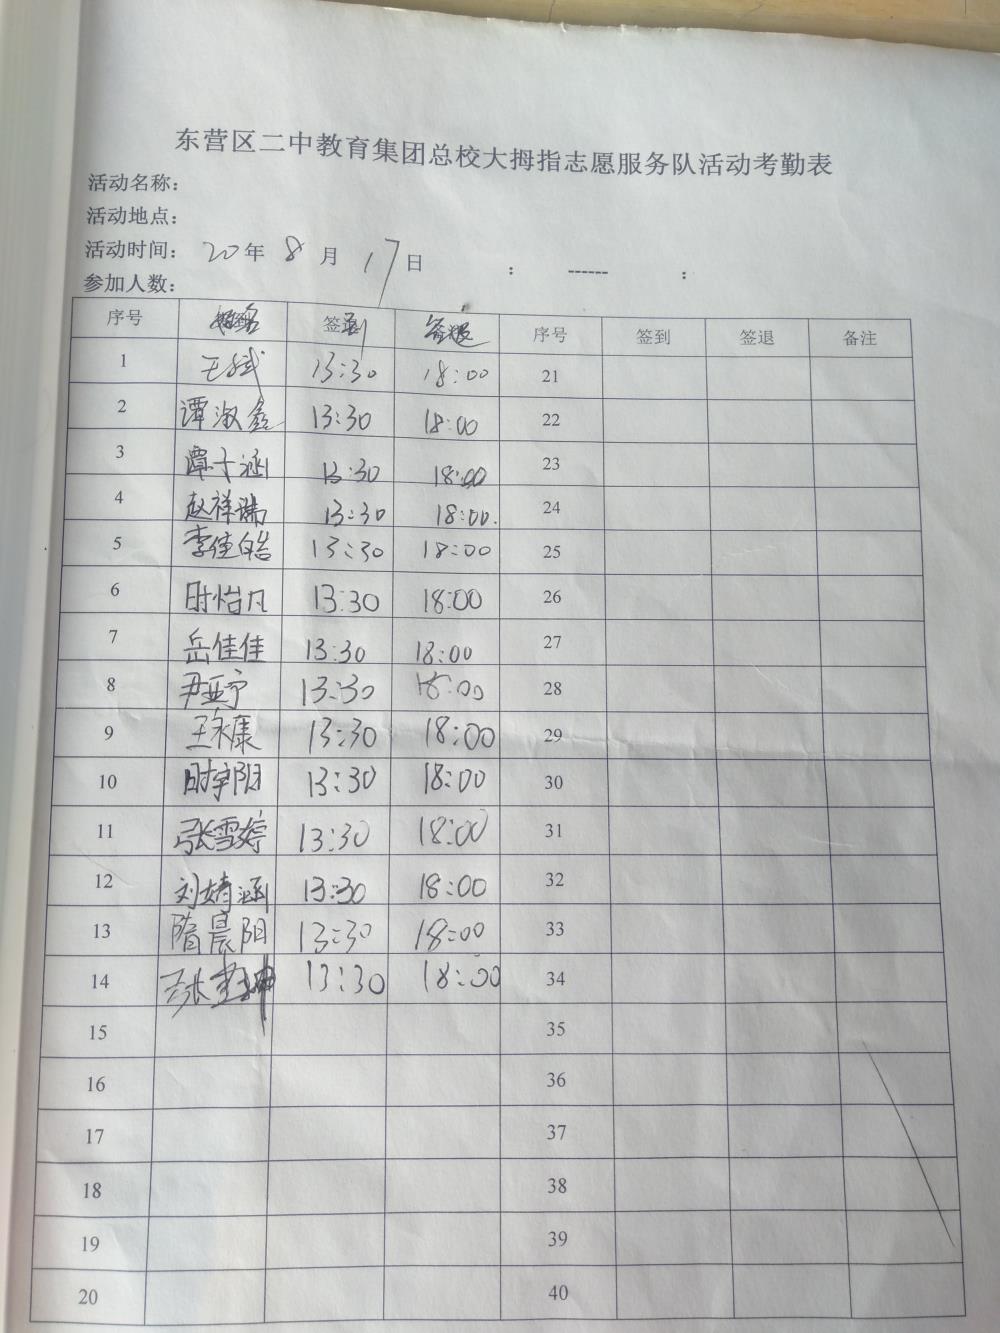 东营区二中教育集团总校大拇指志愿服务队活动考勤表
活动名称：
活动地点：
活动时间： 20年 8 月 17日 ： ------ ：
参加人数：
序号 姓名 签到 签退 序号 签到 签退 备注
1 王斌 13:30 18:00 21
2 谭淑鑫 13:30 18:00 22
3 覃子涵 13:30 18:00 23
4 赵祥瑞 13:30 18:00. 24
5 李佳皓 13:30 18:00 25
6 时怡凡 13:30 18:00 26
7 岳佳佳 13:30 18:00 27
8 尹亚宁 13:30 18:00 28
9 王永康 13:30 18:00 29
10 时宇阳 13:30 18:00 30
11 张雪婷 13:30 18:00 31
12 刘婧涵 13:30 18:00 32
13 隋晨阳 13:30 18:00 33
14 张 13:30 18:00 34
15 35
16 36
17 37
18 38
19 39
20 40